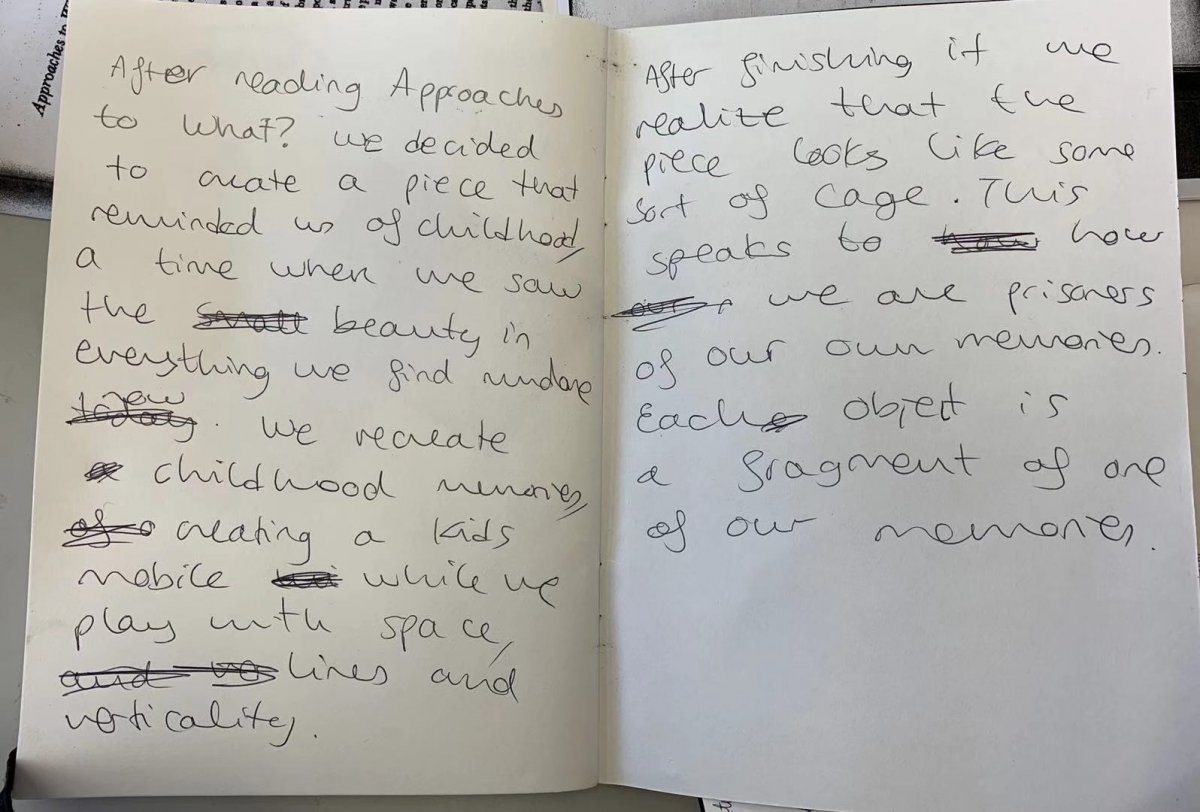 Approaches to
After reading Approaches
to What? we decided
to create a piece that
reminded us of childhood,
a time when we saw
the small beauty in
everything we find mundane
now
today. We recreate
childhood memories,
of creating a kids
mobile while we
play with space,
and lines and
verticality.
After finishing it we
realize that the
piece looks like some
sort of cage. This
speaks to how how
our we are prisoners
of our own memories.
Each object is
a fragment of one
of our memories.